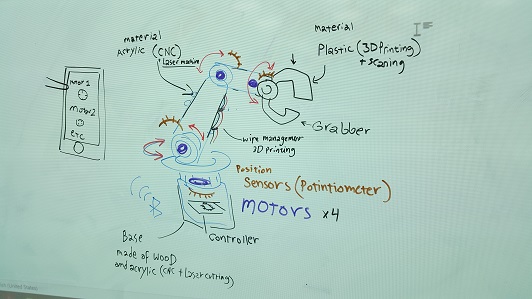 material
Acrylic (CNC)
+ Laser machine
material
Plastic (3D Printing)
+ scaning
motor 1
motor2
etc
Grabber
wire management
3D Printing
Position
Sensors (Potintiometer)
MOTORS x4
Base
made of WOOD
and acrylic (CNC + Laser cutting)
Controller